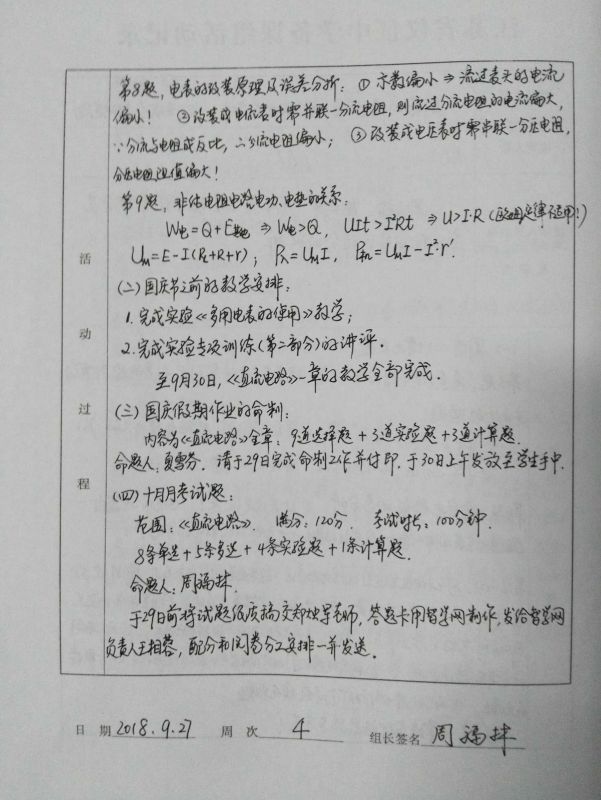 第8题，电表的改装原理及误差分析：① 示数偏小 ⇒ 流过表头的电流
偏小！ ②改装成电流表时需并联一分流电阻，则流过分流电阻的电流偏大，
∵分流与电阻成反比，∴分流电阻偏小； ③改装成电压表时需串联一分压电阻，
分压电阻阻值偏大！
第9题，非纯电阻电路电功、电热的关系：
W电=Q+E其他 ⇒ W电>Q， UIt>I²Rt ⇒ U>I·R (欧姆定律不适用！)
UM=E-I(R+r)； P入=UMI， P出=UMI-I²·r'.
(二)国庆节之前的教学安排：
1. 完成实验《多用电表的使用》教学；
2. 完成实验专项训练(第二部分)的讲评.
至9月30日，《直流电路》一章的教学全部完成.
(三)国庆假期作业的命制：
内容为《直流电路》全章：9道选择题+3道实验题+3道计算题.
命题人：夏雪芬. 请于29日完成命制工作并付印. 于30日上午发放至学生手中.
(四)十月月考试题：
范围：《直流电路》. 满分：120分. 考试时长：100分钟.
8条单选+5条多选+4条实验题+1条计算题.
命题人：周福林.
于29日前将试题纸质稿交老师，答题卡用智学网制作，发给智学网
负责人王相蓉，配分和阅卷分工安排一并发送.
活
动
过
程
日 期 2018.9.27 周 次 4 组长签名 周福林